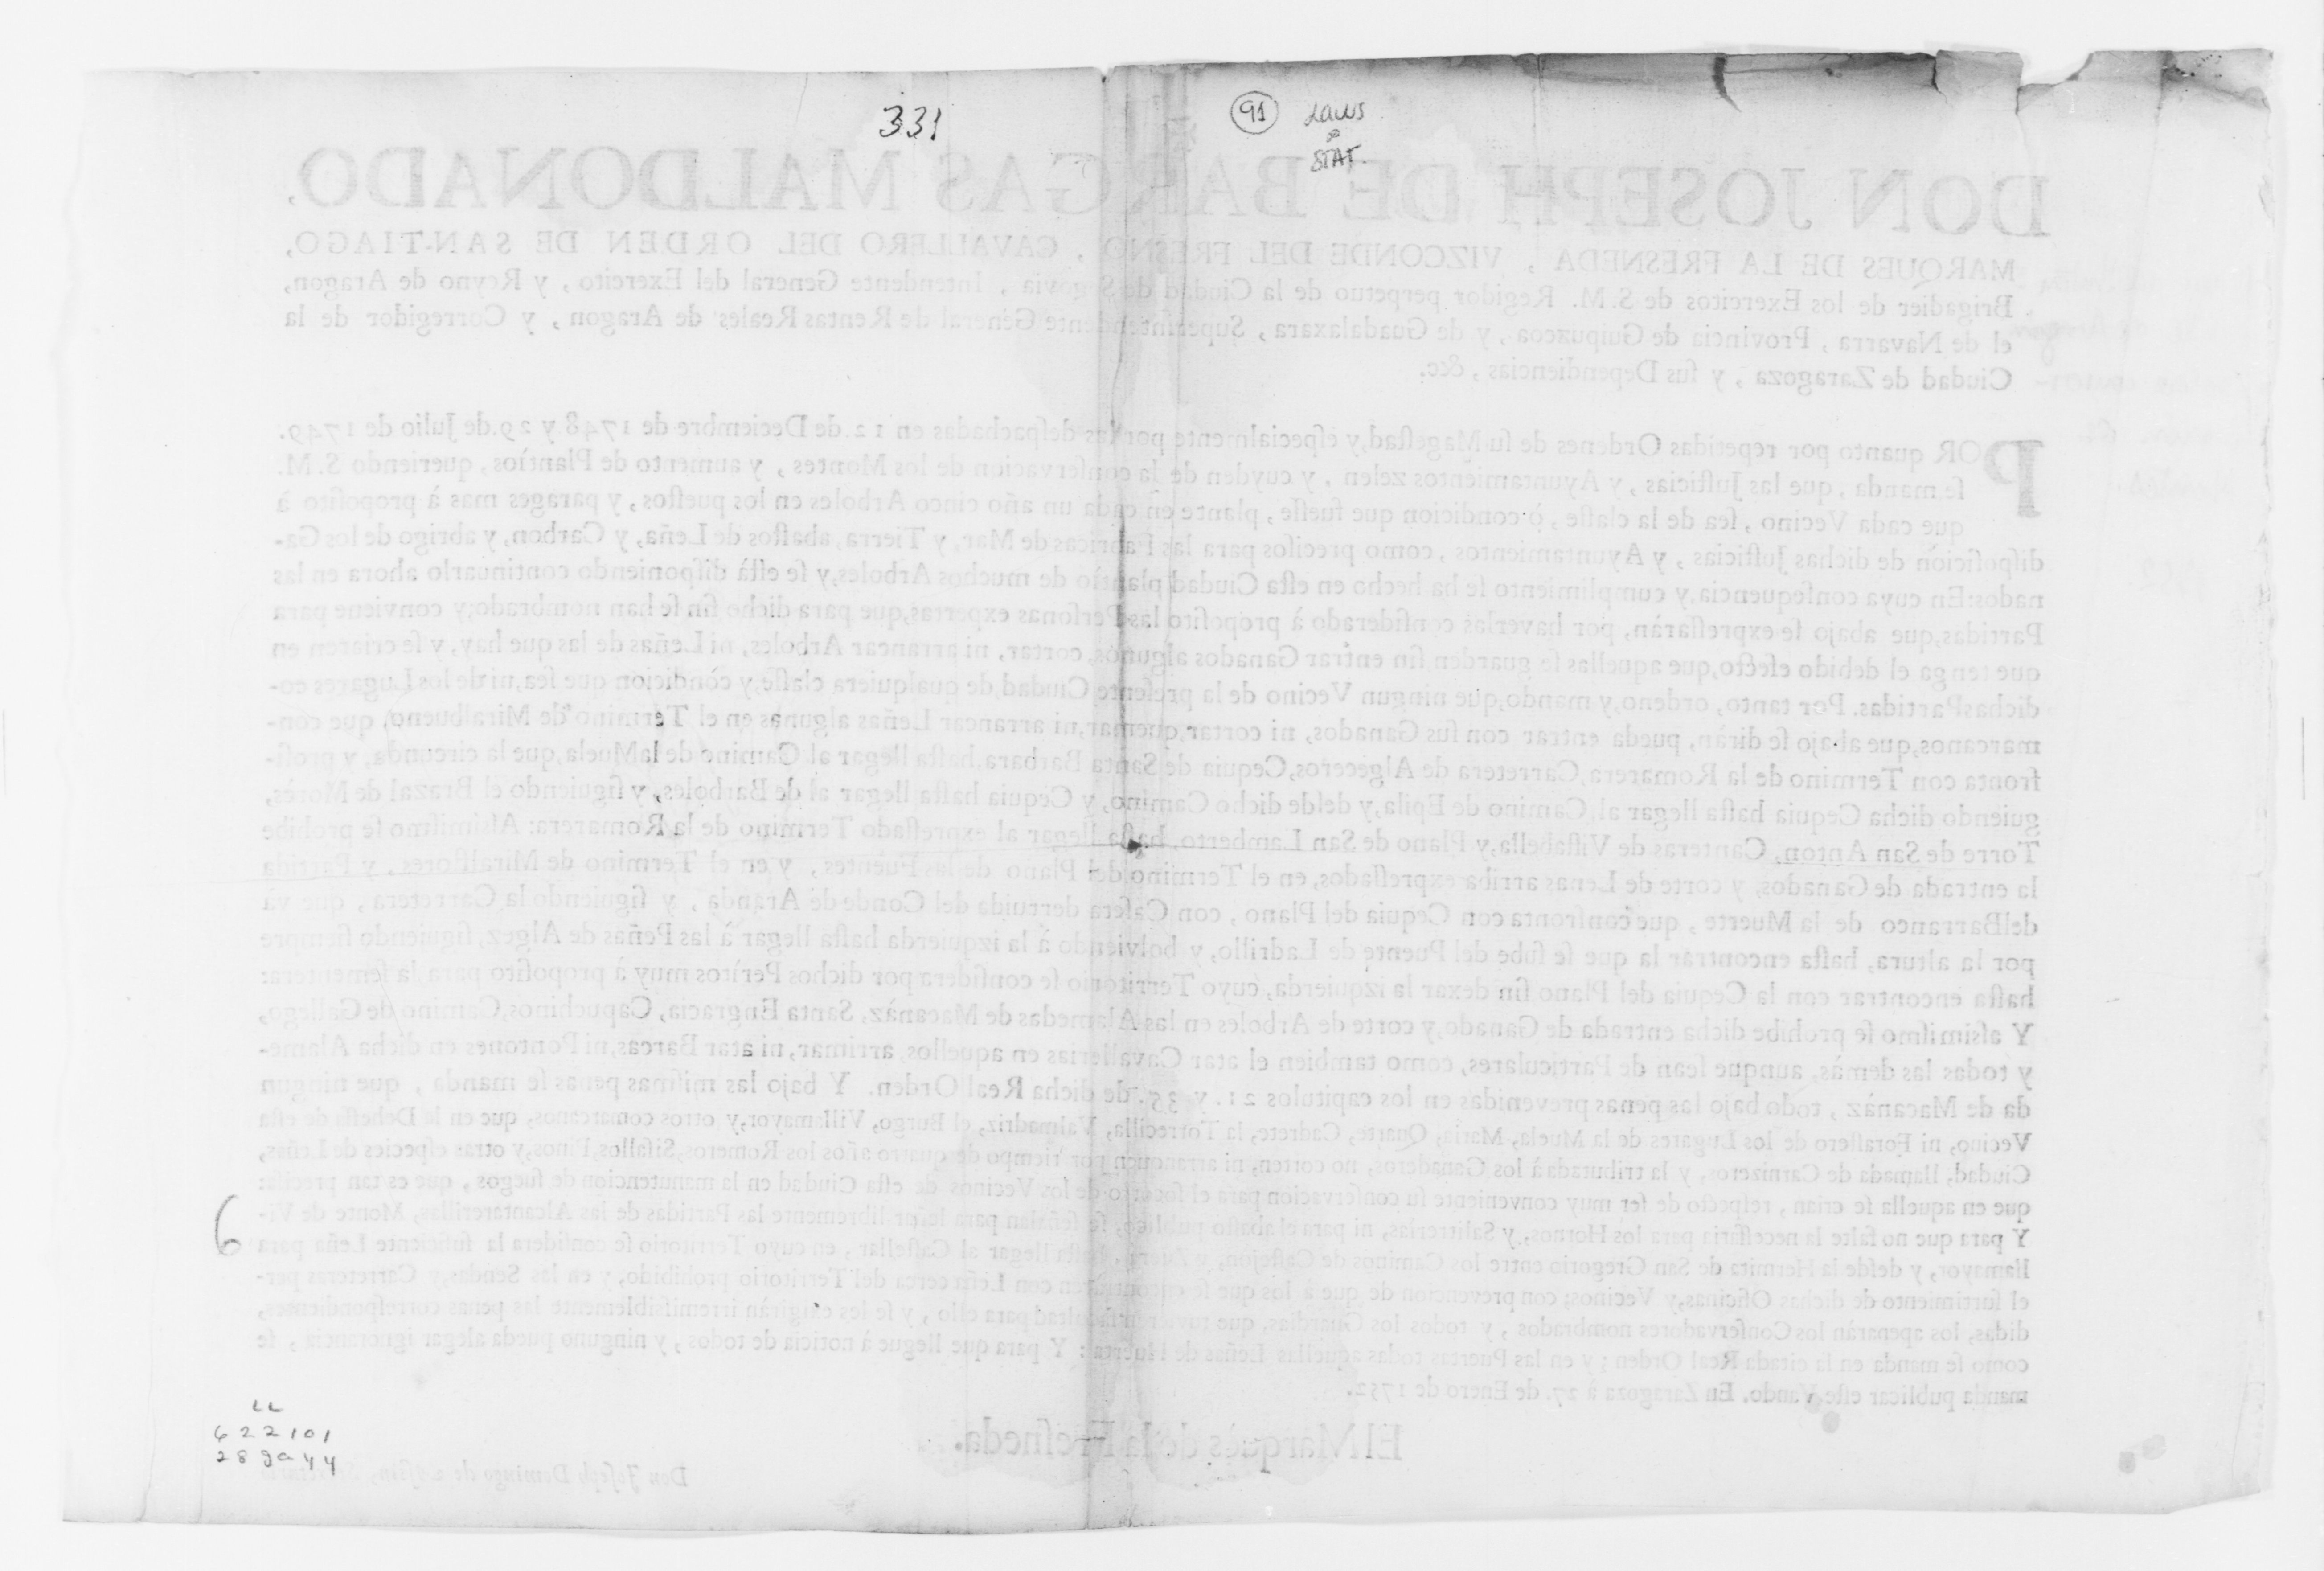 331
91 Laws
&
STAT.
DON JOSEPH DE BARGAS MALDONADO,
MARQUES DE LA FRESNEDA , VIZCONDE DEL FRESNO , CAVALLERO DEL ORDEN DE SAN-TIAGO,
Brigadier de los Exercitos de S. M. Regidor perpetuo de la Ciudad de Segovia , Intendente General del Exercito , y Reyno de Aragon,
el de Navarra , Provincia de Guipuzcoa , y de Guadalaxara , Superintendente General de Rentas Reales de Aragon , y Corregidor de la
Ciudad de Zaragoza , y ſus Dependiencias , &c.
POR quanto por repetidas Ordenes de ſu Mageſtad, y eſpecialmente por las deſpachadas en 12. de Deciembre de 1748 y 29. de Julio de 1749.
ſe manda , que las Juſticias , y Ayuntamientos zelen , y cuyden de la conſervacion de los Montes , y aumento de Plantìos , queriendo S. M.
que cada Vecino , ſea de la claſſe , ò condicion que fueſſe , plante en cada un año cinco Arboles en los pueſtos , y parages mas à propoſito à
diſpoſicion de dichas Juſticias , y Ayuntamientos , como preciſos para las Fabricas de Mar, y Tierra, abaſtos de Leña, y Carbon, y abrigo de los Ga-
nados: En cuya conſequencia, y cumplimiento ſe ha hecho en eſta Ciudad plantìo de muchos Arboles, y ſe eſtà diſponiendo continuarlo ahora en las
Partidas, que abajo ſe expreſſaràn, por haverlas conſiderado à propoſito las Perſonas expertas, que para dicho fin ſe han nombrado; y conviene para
que tenga el debido efecto, que aquellas ſe guarden ſin entrar Ganados algunos, cortar, ni arrancar Arboles, ni Leñas de las que hay, y ſe criaren en
dichas Partidas. Por tanto, ordeno, y mando, que ningun Vecino de la preſente Ciudad, de qualquiera claſſe, y condicion que ſea, ni de los Lugares co-
marcanos, que abajo ſe diràn, pueda entrar con ſus Ganados, ni cortar, quemar, ni arrancar Leñas algunas en el Termino de Miralbueno, que con-
fronta con Termino de la Romarera, Carretera de Algeceros, Cequia de Santa Barbara, haſta llegar al Camino de la Muela, que la circunda, y proſi-
guiendo dicha Cequia haſta llegar al Camino de Epila, y deſde dicho Camino, y Cequia haſta llegar al de Barboles, y ſiguiendo el Brazal de Morès,
Torre de San Anton, Canteras de Viſtabella, y Plano de San Lamberto, haſta llegar al expreſſado Termino de la Romarera: Aſsimiſmo ſe prohibe
la entrada de Ganados, y corte de Lenas arriba expreſſados, en el Termino del Plano de las Fuentes , y en el Termino de Miralflores , y Partida
del Barranco de la Muerte , que confronta con Cequia del Plano , con Caſeta derruida del Conde de Aranda , y ſiguiendo la Carretera , que và
por la altura, haſta encontrar la que ſe ſube del Puente de Ladrillo, y bolviendo à la izquierda haſta llegar à las Peñas de Algez, ſiguiendo ſiempre
haſta encontrar con la Cequia del Plano ſin dexar la izquierda, cuyo Territorio ſe conſidera por dichos Peritos muy à propoſito para la ſementera:
Y aſsimiſmo ſe prohibe dicha entrada de Ganado, y corte de Arboles en las Alamedas de Macanàz, Santa Engracia, Capuchinos, Camino de Gallego,
y todas las demàs, aunque ſean de Particulares, como tambien el atar Cavallerias en aquellos, arrimar, ni atar Barcas, ni Pontones en dicha Alame-
da de Macanàz , todo bajo las penas prevenidas en los capitulos 21. y 35. de dicha Real Orden. Y bajo las miſmas penas ſe manda , que ningun
Vecino, ni Foraſtero de los Lugares de la Muela, Maria, Quarte, Cadrete, la Torrecilla, Valmadriz, el Burgo, Villamayor, y otros comarcanos, que en la Deheſſa de eſta
Ciudad, llamada de Carniceros, y la tributada à los Ganaderos, no corten, ni arranquen por tiempo de quatro años los Romeros, Siſallos, Pinos, y otras eſpecies de Leñas,
que en aquella ſe crian , reſpecto de ſer muy conveniente ſu conſervacion para el ſocorro de los Vecinos de eſta Ciudad en la manutencion de fuegos , que es tan preciſa:
Y para que no falte la neceſſaria para los Hornos, y Salitrerias, ni para el abaſto publico, ſe ſeñalan para leñar libremente las Partidas de las Alcantarerillas, Monte de Vi-
llamayor, y deſde la Hermita de San Gregorio entre los Caminos de Caſtejon, y Zuera , haſta llegar al Caſtellar , en cuyo Territorio ſe conſidera la ſuficiente Leña para
el ſurtimiento de dichas Oficinas, y Vecinos; con prevencion de que à los que ſe encontraren con Leña cerca del Territorio prohibido, y en las Sendas, y Carreteras per-
didas, los apenaràn los Conſervadores nombrados , y todos los Guardias, que tuvieren facultad para ello , y ſe les exigiràn irremiſsiblemente las penas correſpondientes,
como ſe manda en la citada Real Orden ; y en las Puertas todas aquellas Leñas de Huerta : Y para que llegue à noticia de todos , y ninguno pueda alegar ignorancia , ſe
manda publicar eſte Vando. En Zaragoza à 27. de Enero de 1752.
El Marquès de la Freſneda.
Don Joſeph Domingo de Aſſin,
6
LL
622101
28 ga 44